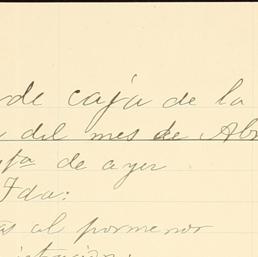 de caja de la
del mes de Abr
de ayer
Fda:
al pormenor